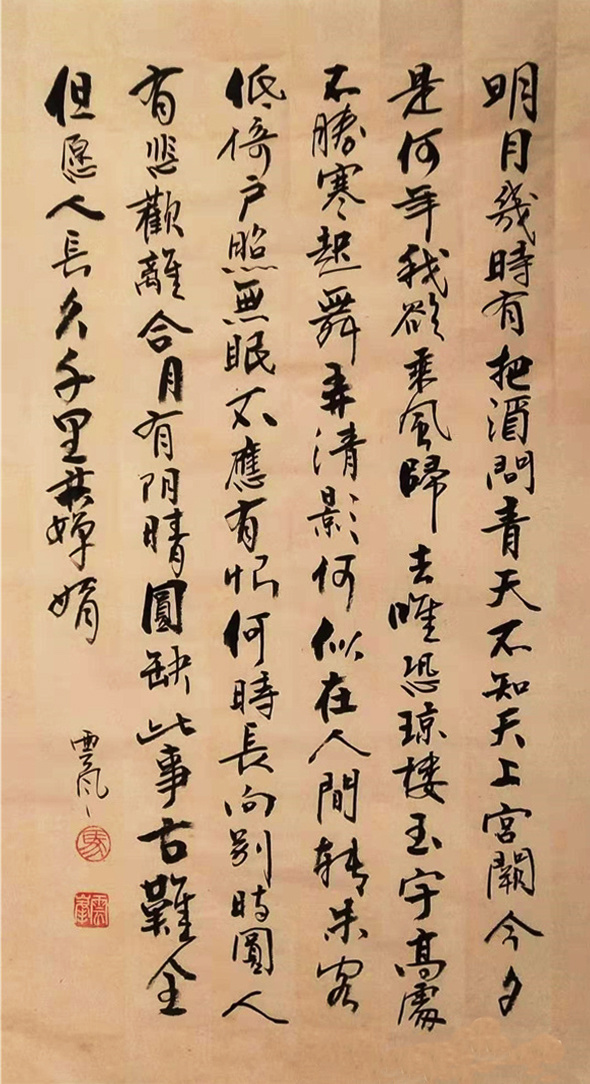 明月幾時有把酒問青天不知天上宮闕今夕
是何年我欲乘風歸去唯恐琼樓玉宇高處
不勝寒起舞弄清影何似在人間轉朱閣
低倚户照無眠不應有恨何時長向别時圓人
有悲歡離合月有阴晴圓缺此事古難全
但愿人長久千里共嬋娟
雲风
馬